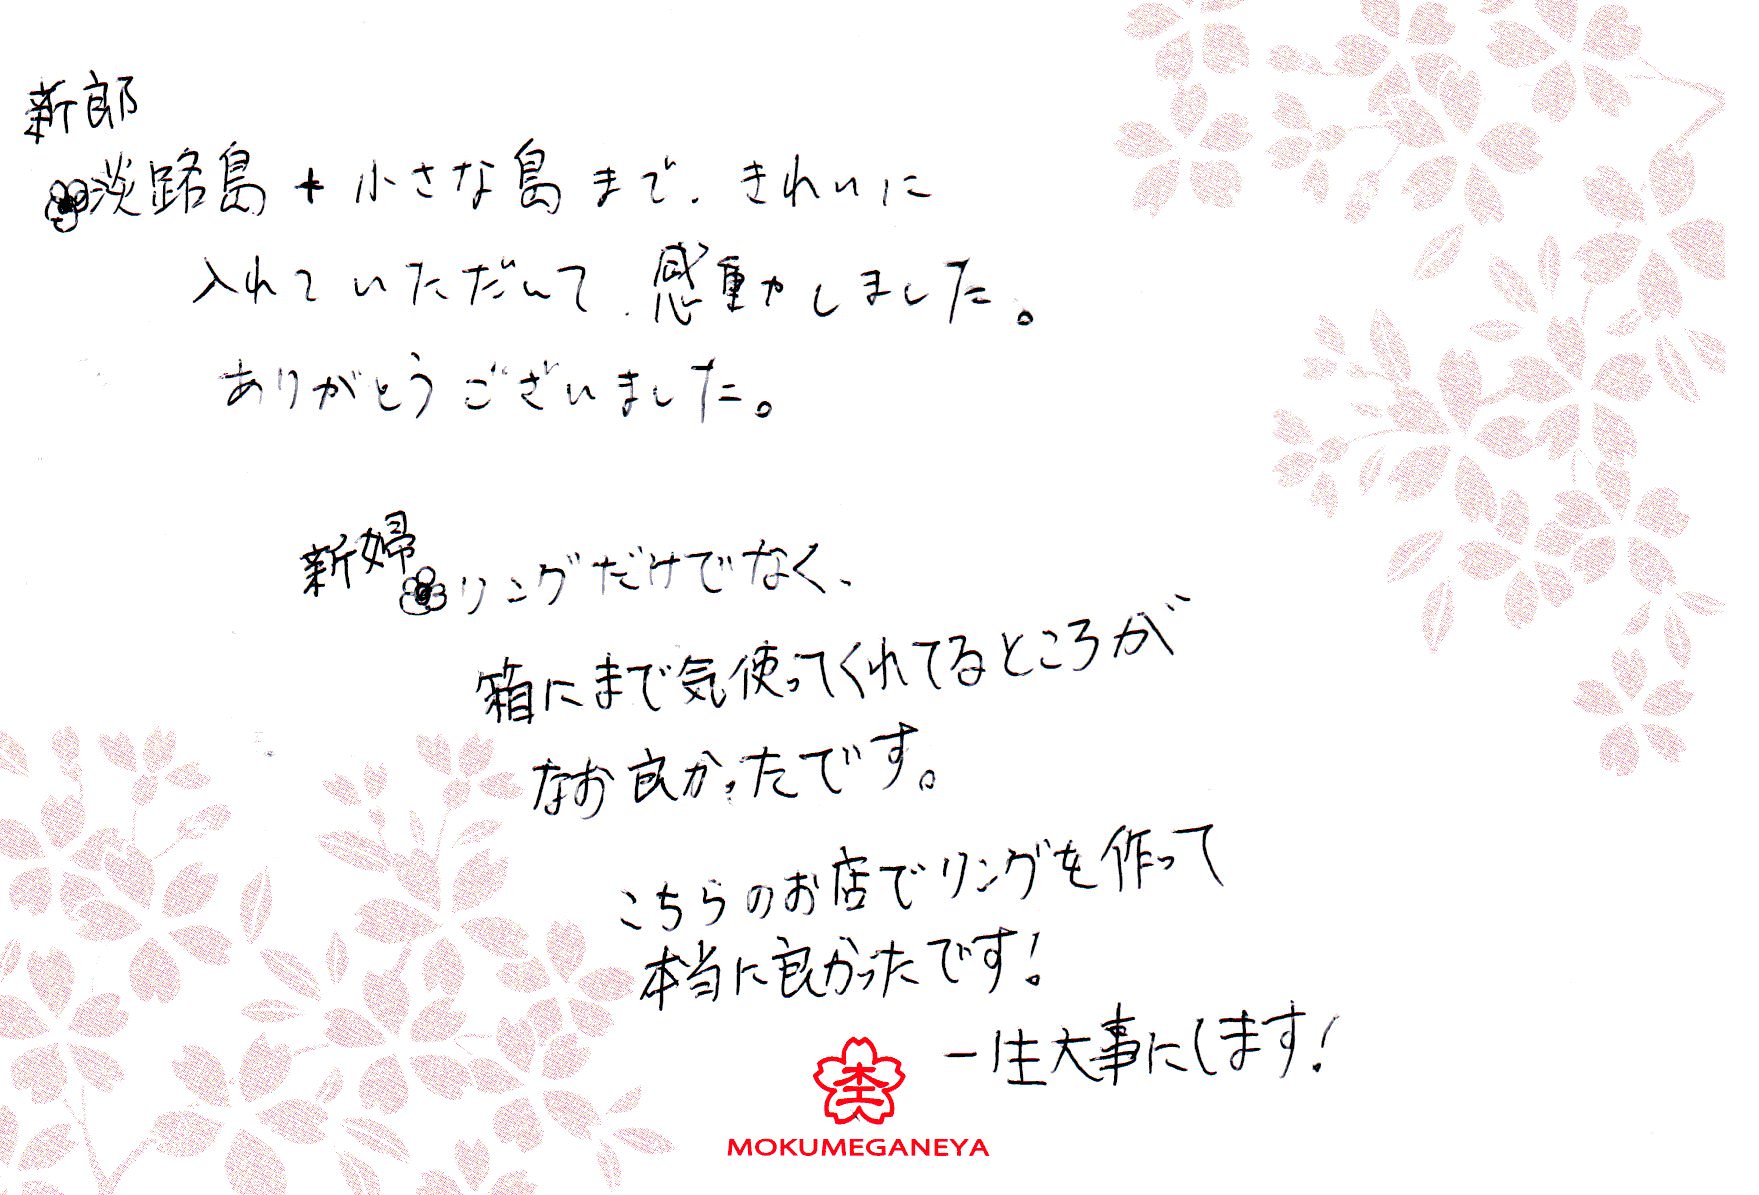 新郎
淡路島+小さな島まで、きれいに
入れていただいて、感動しました。
ありがとうございました。
新婦
リングだけでなく、
箱にまで気使ってくれてるところが
なお良かったです。
こちらのお店でリングを作って
本当に良かったです!
一生大事にします!
MOKUMEGANEYA